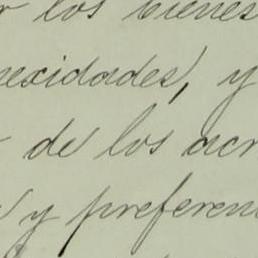 los bienes
nexidades, y
de los acr
y preferen